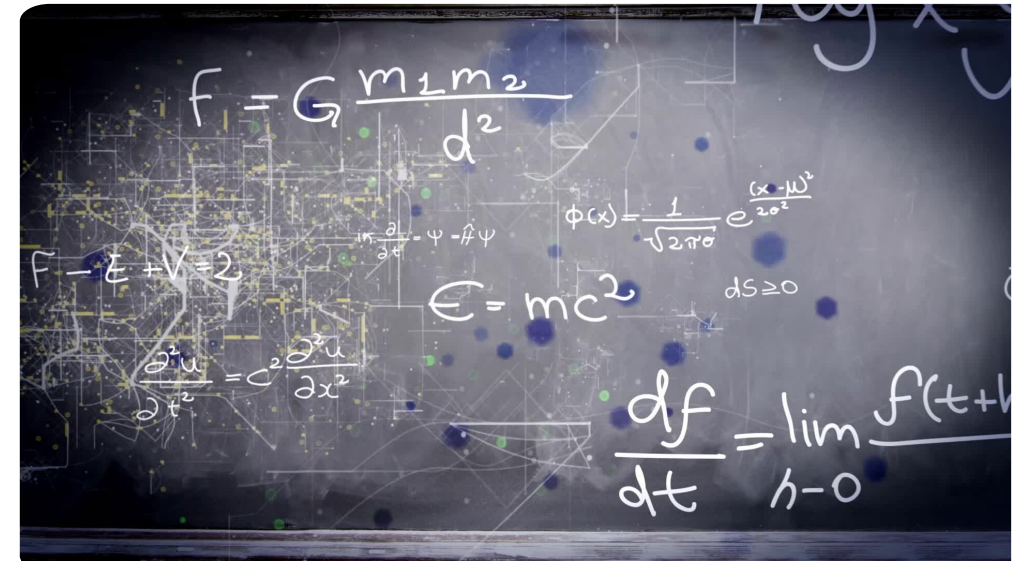 log x y
F = G m1m2 / d²
Φ(x) = 1 / √2πσ e^(x-μ)² / 2σ²
iℏ ∂ / ∂t = Ψ = ĤΨ
F - E + V = 2
E = mc²
dS ≥ 0
∂²u / ∂t² = c² ∂²u / ∂x²
df / dt = lim h-0 f(t+h